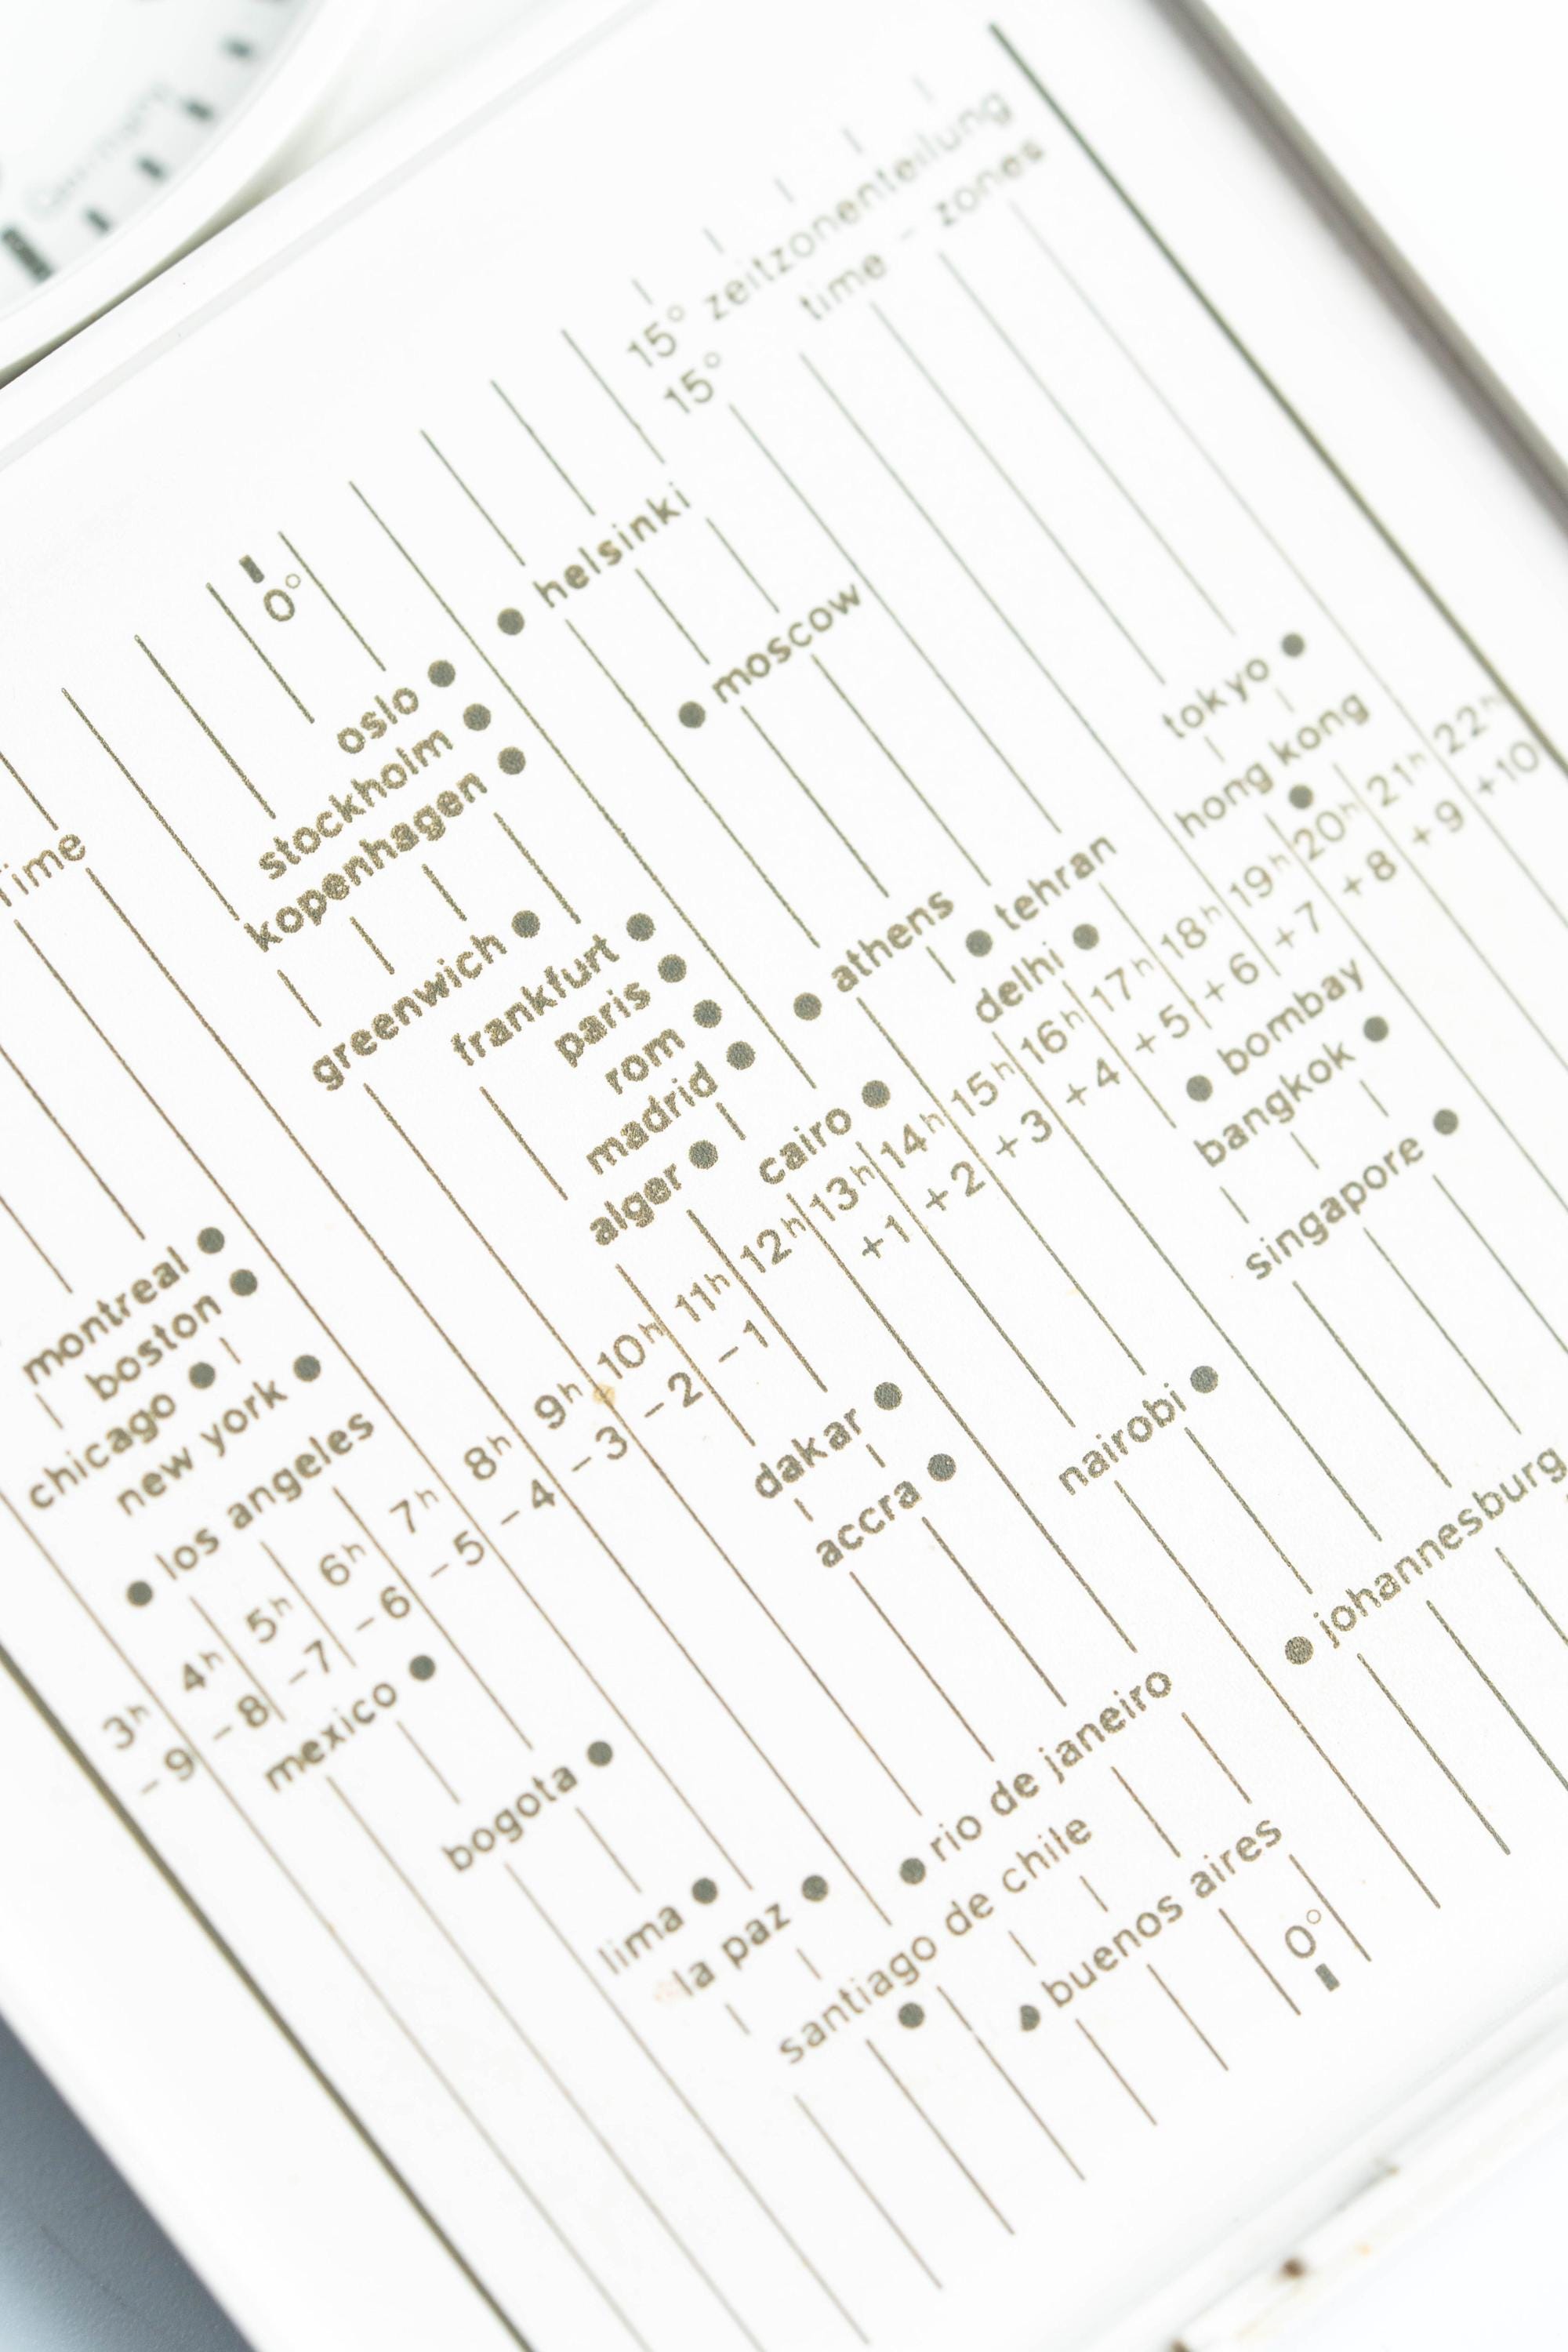 Germany
15° zeitzonenteilung
15° time - zones
0°
helsinki
moscow
oslo
stockholm
kopenhagen
tokyo
hong kong
Time
greenwich
frankfurt
paris
rom
madrid
alger
athens
tehran
delhi
cairo
bombay
bangkok
singapore
montreal
boston
chicago
new york
los angeles
3h 4h 5h 6h 7h 8h 9h 10h 11h 12h 13h 14h 15h 16h 17h 18h 19h 20h 21h 22h
-9 -8 -7 -6 -5 -4 -3 -2 -1 +1 +2 +3 +4 +5 +6 +7 +8 +9 +10
dakar
accra
nairobi
johannesburg
mexico
bogota
lima
la paz
rio de janeiro
santiago de chile
buenos aires
0°